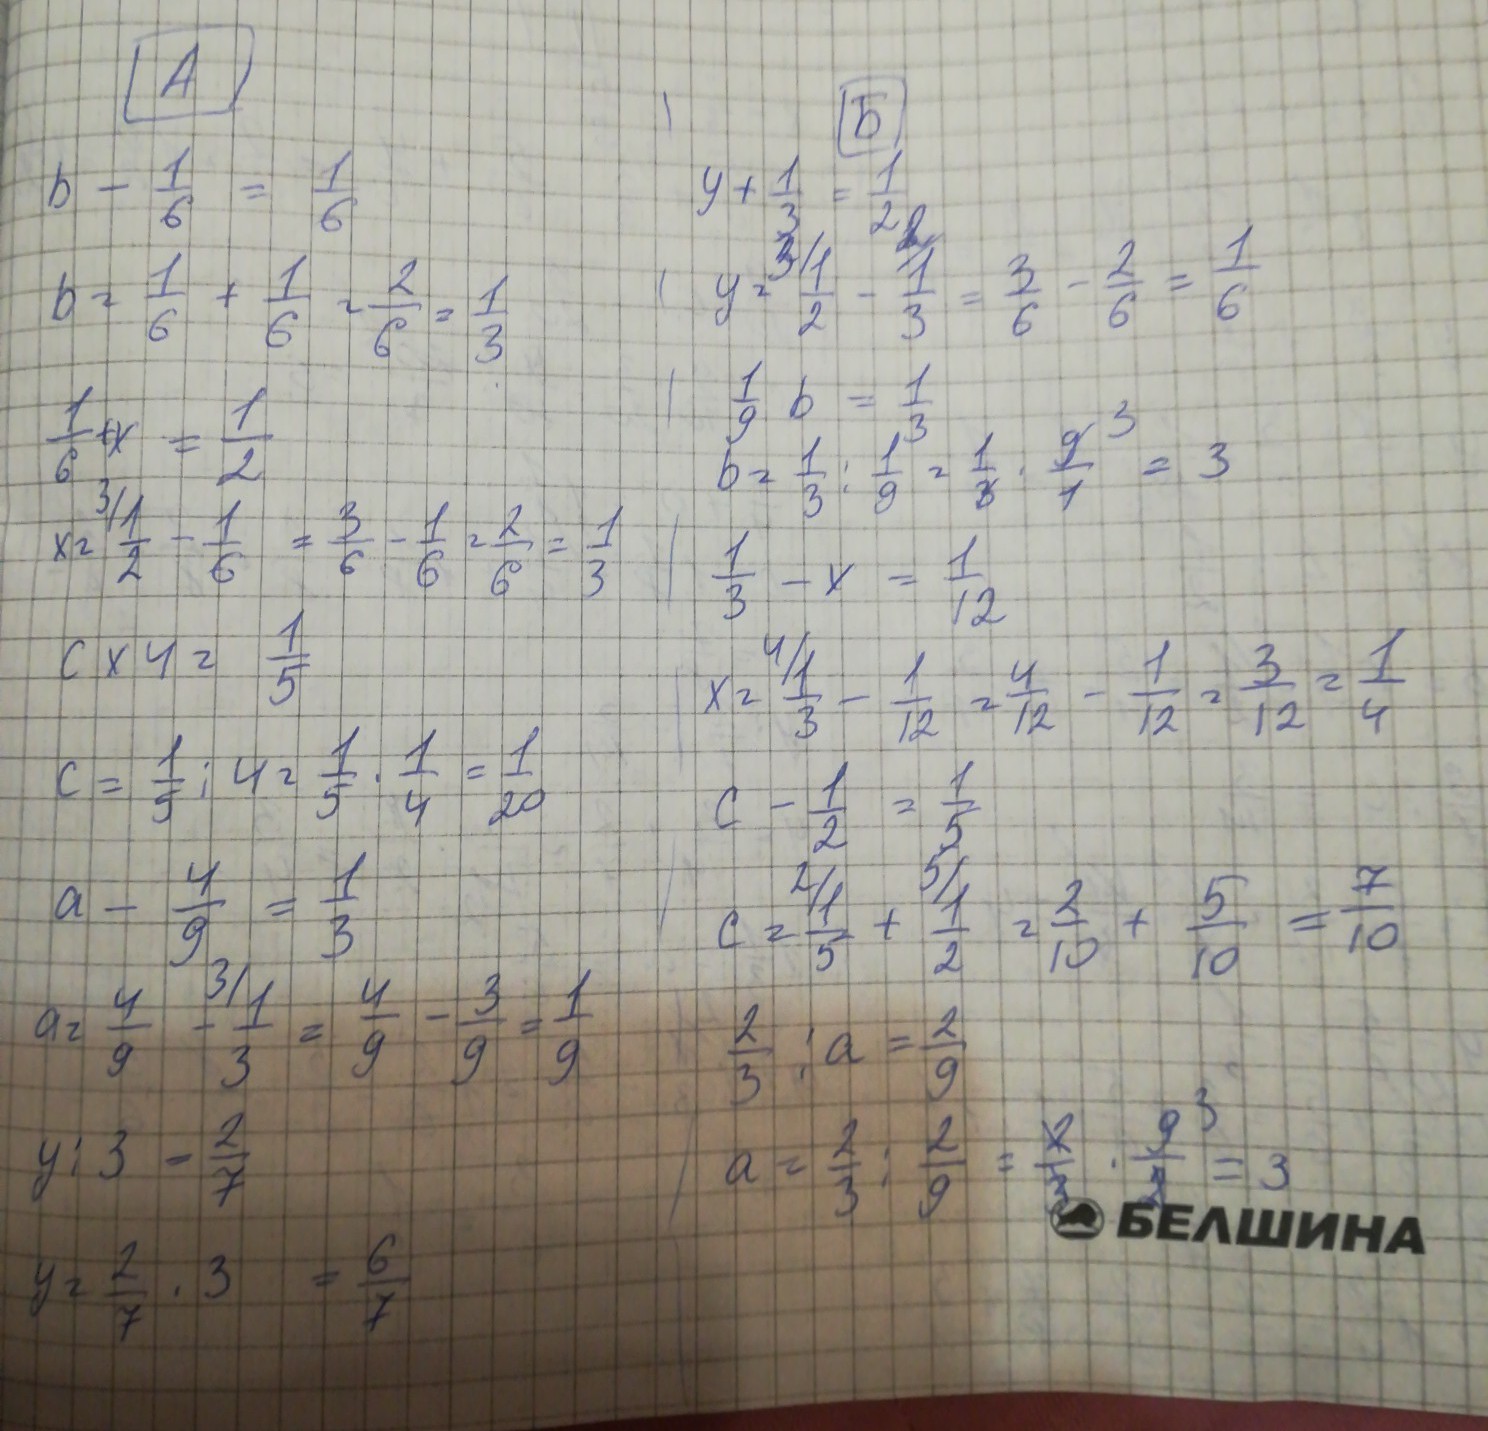 А
b - 1/6 = 1/6
b = 1/6 + 1/6 = 2/6 = 1/3
1/6 + x = 1/2
x = 3/ 1/2 - 1/6 = 3/6 - 1/6 = 2/6 = 1/3
c x 4 = 1/5
c = 1/5 : 4 = 1/5 · 1/4 = 1/20
a - 4/9 = 1/3
a = 4/9 - 3/ 1/3 = 4/9 - 3/9 = 1/9
y : 3 = 2/7
y = 2/7 · 3 = 6/7
Б
y + 1/3 = 1/2
y = 3/ 1/2 - 2/ 1/3 = 3/6 - 2/6 = 1/6
1/9 b = 1/3
b = 1/3 : 1/9 = 1/3 · 9/1 3 = 3
1/3 - x = 1/12
x = 4/ 1/3 - 1/12 = 4/12 - 1/12 = 3/12 = 1/4
c - 1/2 = 1/5
c = 2/ 1/5 + 5/ 1/2 = 2/10 + 5/10 = 7/10
2/3 : a = 2/9
a = 2/3 : 2/9 = 2/3 · 9/2 3 = 3
БЕЛШИНА